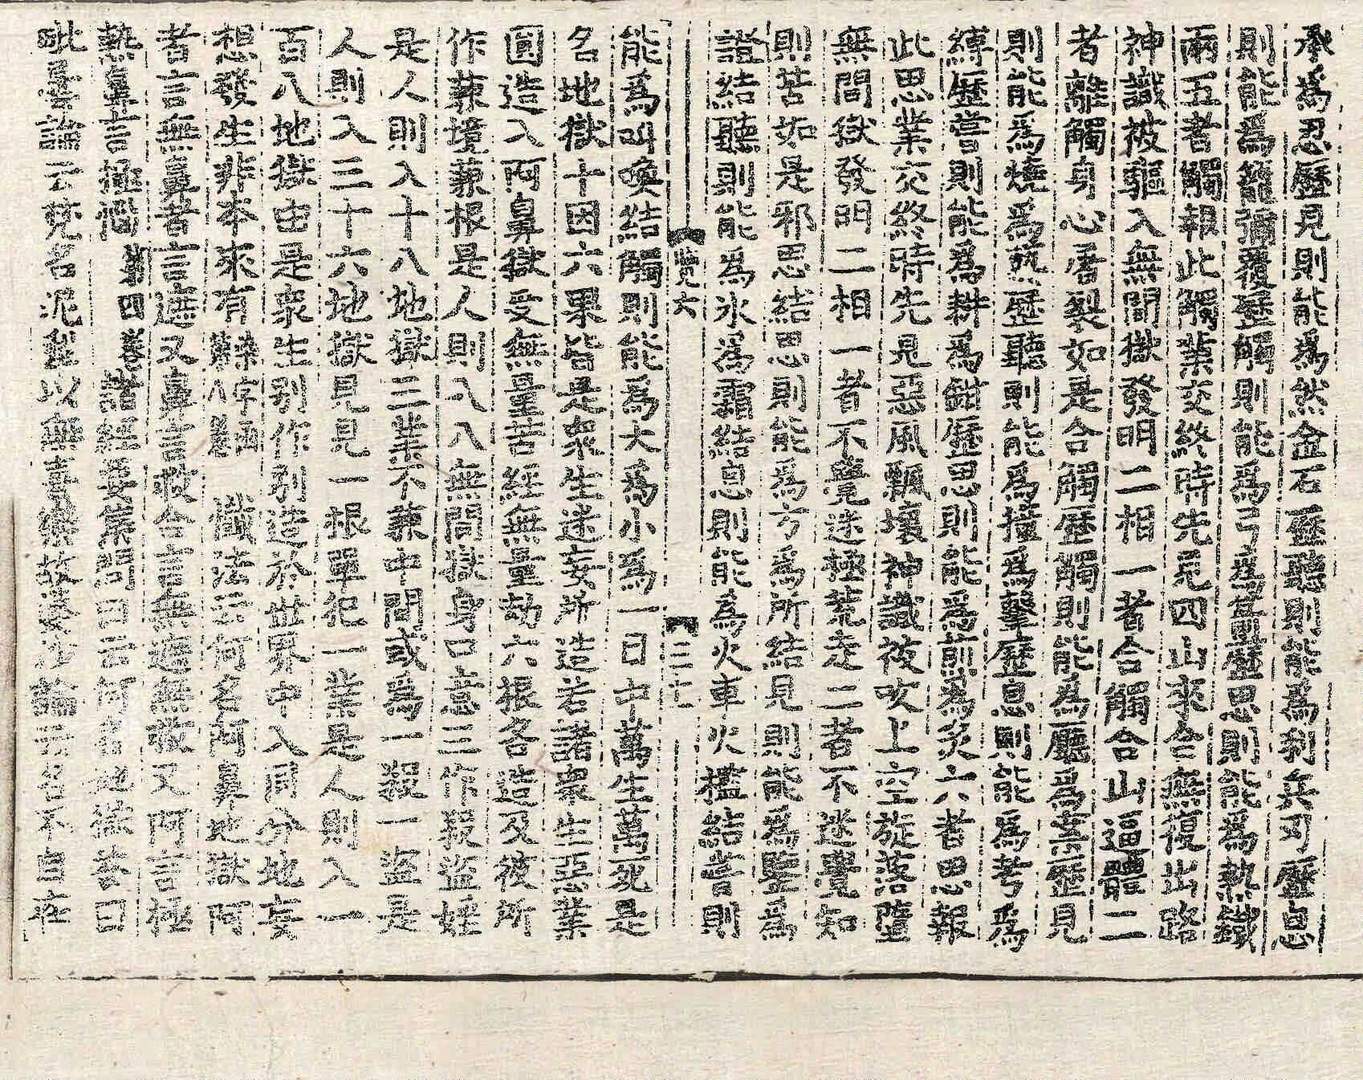 承為忍歷見則能為然金石歷聽則能為刺兵刃歷息
則能為籠彌覆歷觸則能為弓為箭歷思則能為熱鐵
兩五者觸報此觸業交終時先見四山來合無復出路
神識被驅入無間獄發明二相一者合觸合山逼體二
者離觸身心屠裂如是合觸歷觸則能為廳為案歷見
則能為燒為爇歷聽則能為撞為擊歷息則能為考為
縛歷嘗則能為耕為鉗歷思則能為煎為炙六者思報
此思業交終時先見惡風飄壞神識被吹上空旋落墮
無間獄發明二相一者不覺迷極荒走二者不迷覺知
則苦如是邪思結思則能為方為所結見則能為鑒為
證結聽則能為氷為霜結息則能為火車火檻結嘗則
覽六 二十七
能為叫喚結觸則能為大為小為一日中萬生萬死是
名地獄十因六果皆是衆生迷妄所造若諸衆生惡業
圓造入阿鼻獄受無量苦經無量劫六根各造及彼所
作兼境兼根是人則入八無間獄身口意三作殺盜婬
是人則入十八地獄三業不兼中間或為一殺一盜是
人則入三十六地獄見見一根單犯一業是人則入一
百八地獄由是衆生別作別造於世界中入同分地妄
想發生非本來有 懺法云何名阿鼻地獄阿
者言無鼻者言遮又鼻言救合言無遮無救又阿言極
熱鼻言極惱 第四卷 諸經要集問曰云何名地獄答曰
毗曇論云梵名泥犁以無喜樂故婆沙論云名不自在